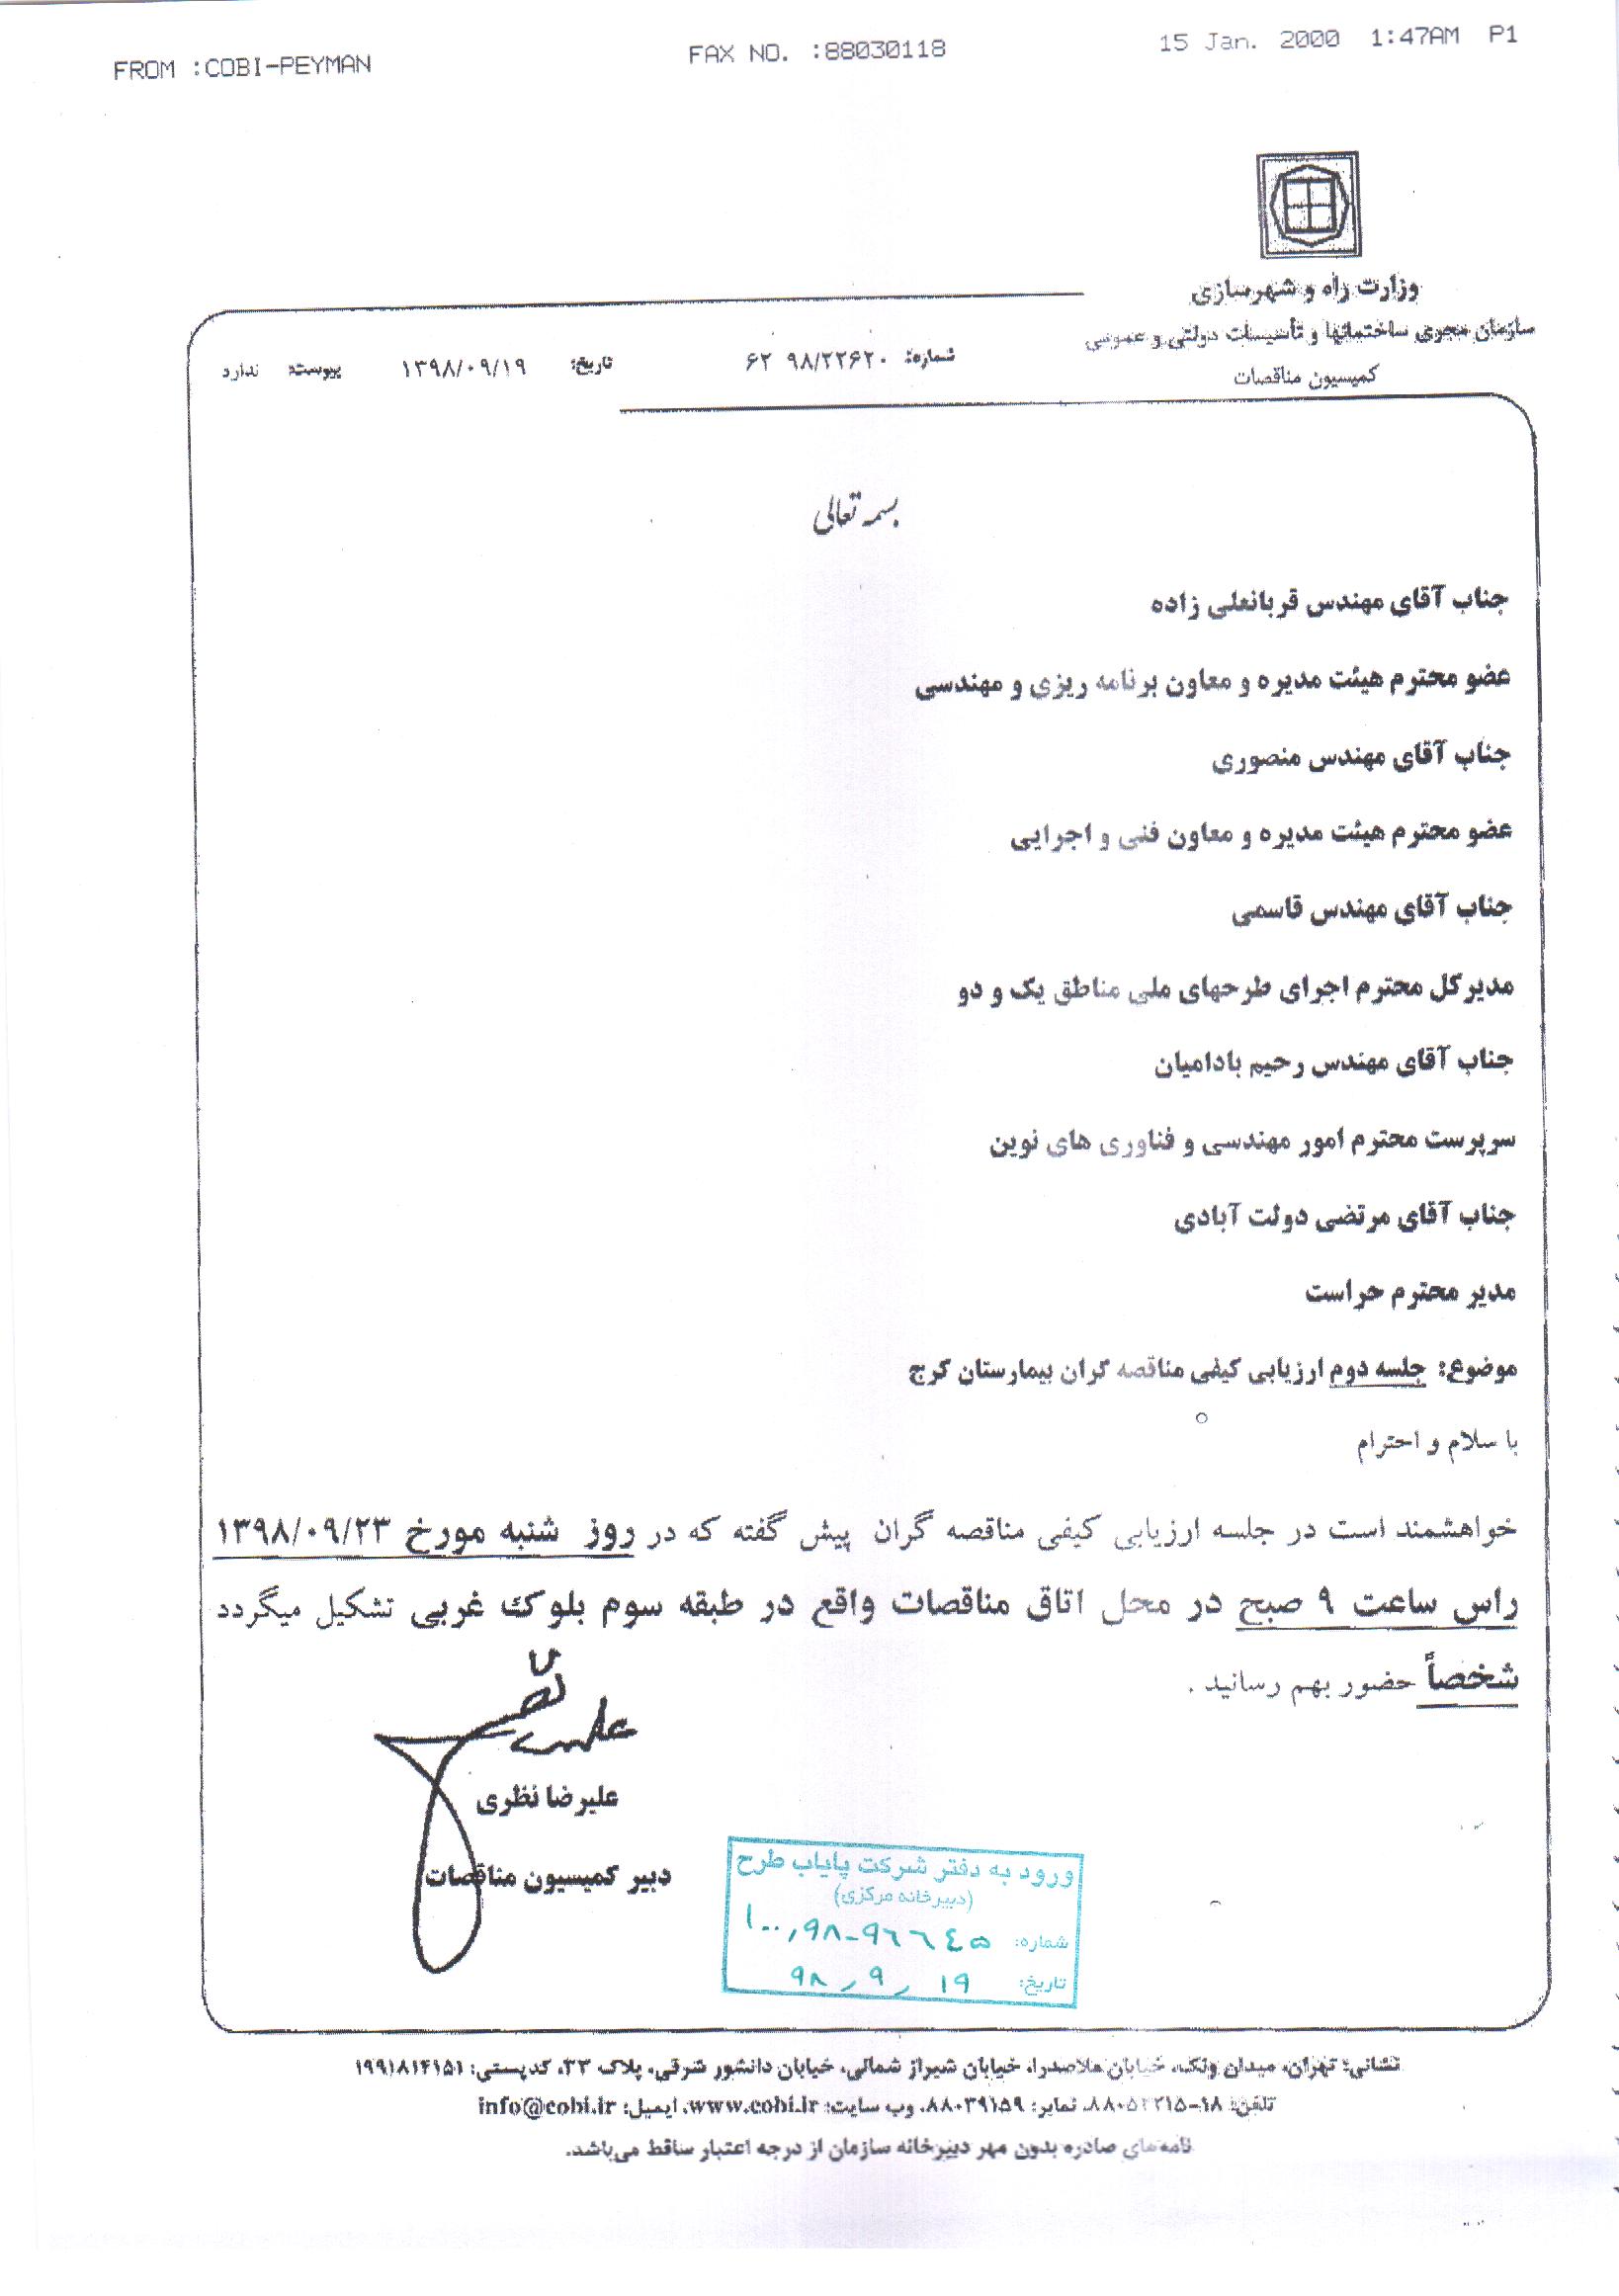 FROM :COBI-PEYMAN FAX NO. :88030118 15 Jan. 2000 1:47AM P1
وزارت راه و شهرسازی
سازمان مجری ساختمانها و تأسیسات دولتی و عمومی
کمیسیون مناقصات
شماره: ۹۸/۲۲۶۲۰ ۶۲ تاریخ: ۱۳۹۸/۰۹/۱۹ پیوست: ندارد
بسمه تعالی
جناب آقای مهندس قربانعلی زاده
عضو محترم هیئت مدیره و معاون برنامه ریزی و مهندسی
جناب آقای مهندس منصوری
عضو محترم هیئت مدیره و معاون فنی و اجرایی
جناب آقای مهندس قاسمی
مدیرکل محترم اجرای طرحهای ملی مناطق یک و دو
جناب آقای مهندس رحیم بادامیان
سرپرست محترم امور مهندسی و فناوری های نوین
جناب آقای مرتضی دولت آبادی
مدیر محترم حراست
موضوع: جلسه دوم ارزیابی کیفی مناقصه گران بیمارستان کرج
با سلام و احترام
خواهشمند است در جلسه ارزیابی کیفی مناقصه گران پیش گفته که در روز شنبه مورخ ۱۳۹۸/۰۹/۲۳
راس ساعت ۹ صبح در محل اتاق مناقصات واقع در طبقه سوم بلوک غربی تشکیل میگردد
شخصاً حضور بهم رسانید .
علیرضا نظری
دبیر کمیسیون مناقصات
ورود به دفتر شرکت پایاب طرح
(دبیرخانه مرکزی)
شماره: ۱۰۰,۹۸-۹۶۶۴۵
تاریخ: ۹۸ , ۹ , ۱۹
نشانی: تهران، میدان ونک، خیابان ملاصدرا، خیابان شیراز شمالی، خیابان دانشور شرقی، پلاک ۲۳، کدپستی: ۱۹۹۱۸۱۴۱۵۱
تلفن: ۱۸-۸۸۰۵۲۲۱۵، نمابر: ۸۸۰۳۹۱۵۹، وب سایت: www.cobi.ir، ایمیل: info@cobi.ir
نامه‌های صادره بدون مهر دبیرخانه سازمان از درجه اعتبار ساقط می‌باشد.